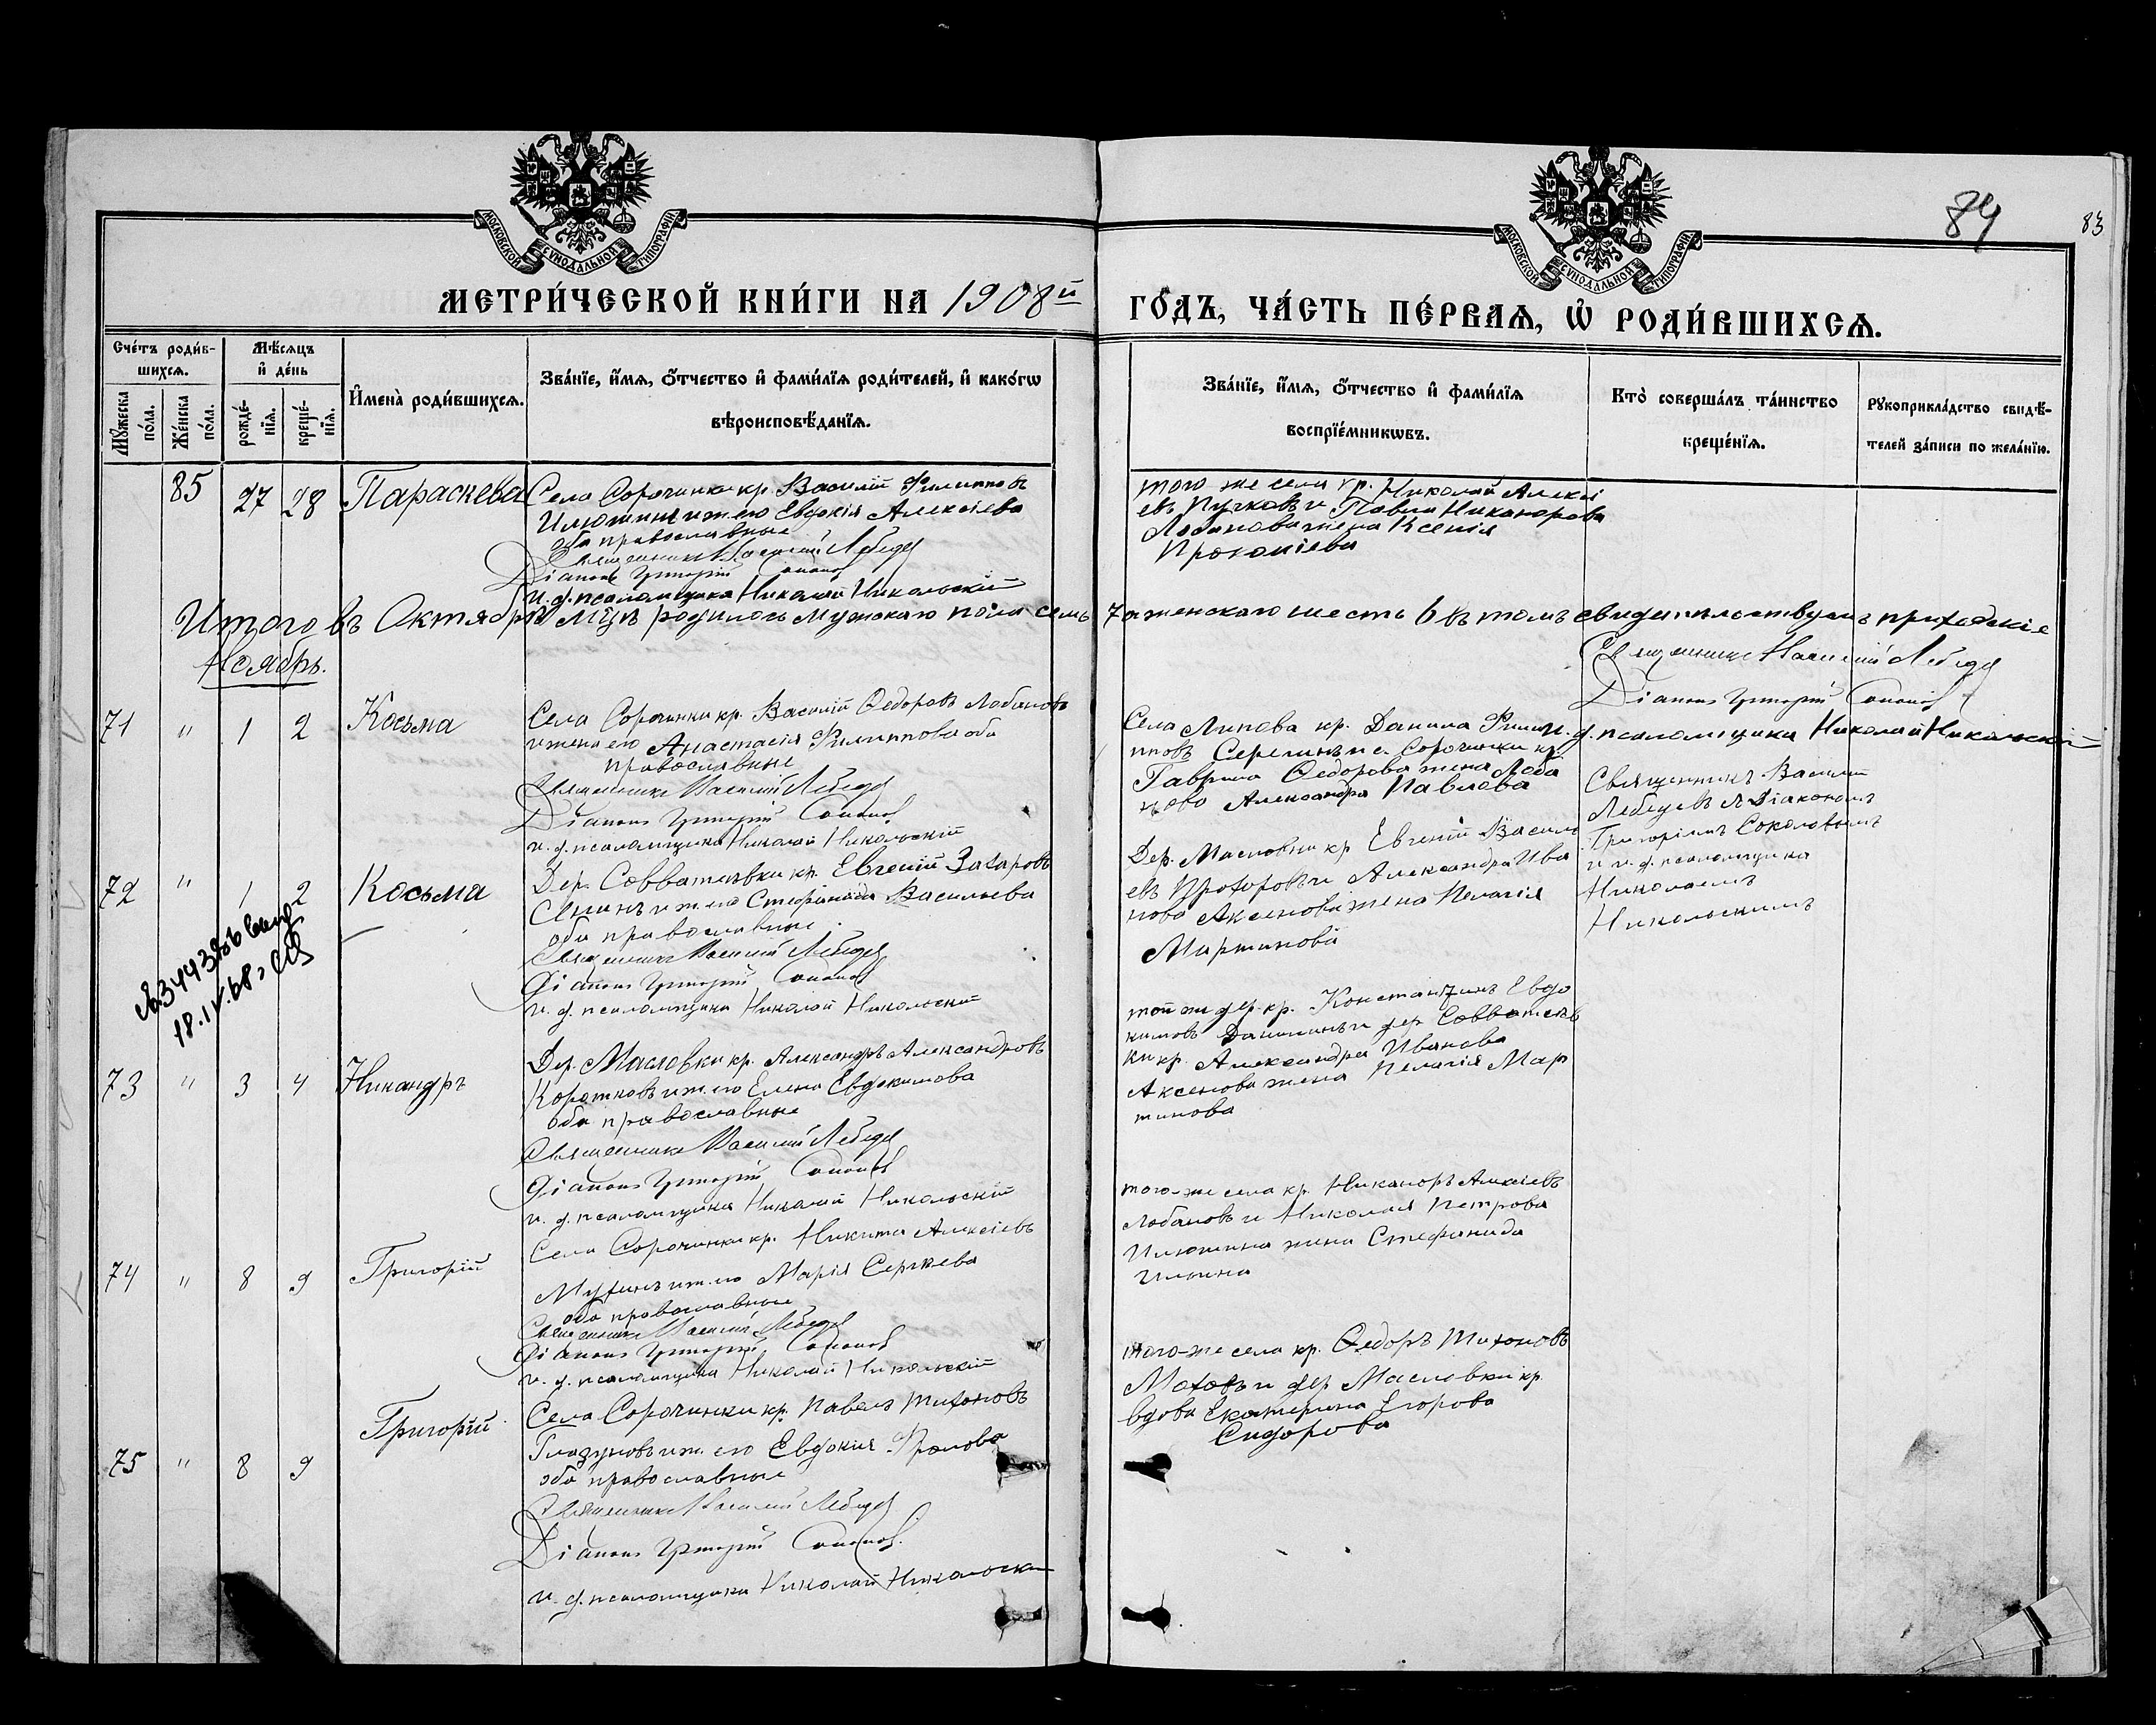 МОСКОВСКОЙ СѴНОДАЛЬНОЙ ТИПОГРАФІИ
МОСКОВСКОЙ СѴНОДАЛЬНОЙ ТИПОГРАФІИ
84
83
МЕТРИ́ЧЕСКОЙ КНИ́ГИ НА 1908й
ГО́ДЪ, ЧА́СТЬ ПЕ́РВАѦ, Ѡ҆ РОДИ́ВШИХСѦ.
Сче́тъ роди́в-
шихсѧ.
Мꙋ́жеска по́ла.
Же́нска по́ла.
Мѣ́сѧцъ
и҆ де́нь
рожде́-
нїѧ.
креще́-
нїѧ.
И҆мена̀ роди́вшихсѧ.
Зва́нїе, и҆́мѧ, ѻ҆́тчество и҆ фами́лїѧ роди́телей, и҆ како́гѡ
вѣроисповѣ́данїѧ.
Зва́нїе, и҆́мѧ, ѻ҆́тчество и҆ фами́лїѧ
воспрїе́мникѡвъ.
Кто̀ соверша́лъ та́инство
креще́нїѧ.
Рꙋкоприкла́дство свидѣ́-
телей за́писи по жела́нїю.
85 27 28 Параскева
Села Сорочинки кр. Василій Филипповъ
Илюшинъ и ж. его Евдокія Алексіева
оба православные
Священникъ Василій Лебедев
Діаконъ Григорій Соколов
и. д. псаломщика Николай Никольскій
того же села кр. Николай Алексі
евъ Пучковъ и Павла Никанорова
Лобанова жена Ксенія
Прокопіева
Итого въ Октябрѣ мѣцѣ родилось мужскаго пола семь 7 а женскаго шесть 6 въ томъ свидѣтельствуемъ приходскіе
Священникъ Василій Лебедев
Діаконъ Григорій Соколов
и. д. псаломщика Николай Никольскій
Ноябрь.
71 " 1 2 Косьма
Села Сорочинки кр. Василій Ѳедоровъ Лобановъ
и жена его Анастасія Филиппова оба
православные
Священникъ Василій Лебедев
Діаконъ Григорій Соколов
и. д. псаломщика Николай Никольскій
Села Липова кр. Данила Фили
пповъ Серегинъ и с. Сорочинки кр.
Гаврила Ѳедорова жена Лоба
нова Александра Павлова
Священникъ Василій
Лебедевъ с Діакономъ
Григоріемъ Соколовымъ
и и. д. псаломщика
Николаемъ
Никольскимъ
72 " 1 2 Косьма
Дер. Савватеевки кр. Евгеній Захаровъ
и ж. его Стефанида Васильева
оба православные
Священникъ Василій Лебедев
Діаконъ Григорій Соколов
и. д. псаломщика Николай Никольскій
Дер. Масловки кр. Евгеній Василь
евъ Прохоровъ и Александра Ива
нова Аксенова жена Пелагія
Мартинова
18.IV.68 г.
73 " 3 4 Никандръ
Дер. Масловки кр. Александръ Александровъ
Коротковъ и ж. его Елена Евдокимова
оба православные
Священникъ Василій Лебедев
Діаконъ Григорій Соколов
и. д. псаломщика Николай Никольскій
той же дер. кр. Константинъ Евдо
кимовъ Данилинъ и дер. Савватеев
ки кр. Александра Иванова
Аксенова жена Пелагія Мар
тинова
74 " 8 9 Григорій
Села Сорочинки кр. Никита Алексіевъ
Мухинъ и ж. его Марія Сергеева
оба православные
Священникъ Василій Лебедев
Діаконъ Григорій Соколов
и. д. псаломщика Николай Никольскій
того-же села кр. Никаноръ Алексіевъ
Лобановъ и Николая Петрова
Илюшина жена Стефанида
Ильина
75 " 8 9 Григорій
Села Сорочинки кр. Павелъ Тихоновъ
Глазуновъ и ж. его Евдокія Фролова
оба православные
Священникъ Василій Лебедев
Діаконъ Григорій Соколов.
и. д. псаломщика Николай Никольскій
того-же села кр. Ѳедоръ Тихоновъ
Моховъ и дер. Масловки кр.
вдова Екатерина Егорова
Сидорова